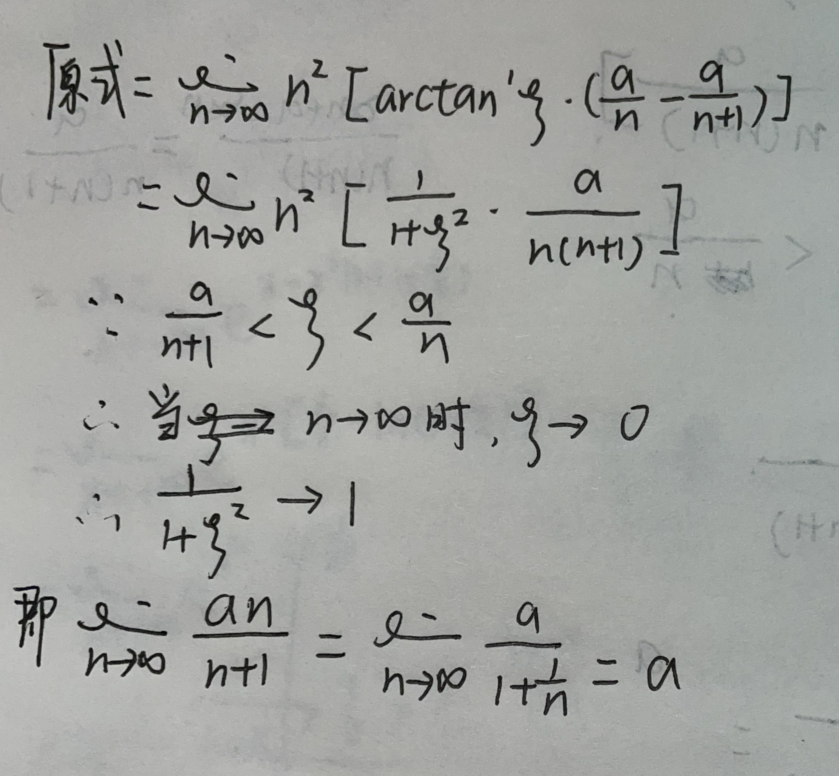 原式 = lim n→∞ n² [arctan'ξ · (a/n - a/(n+1))]
= lim n→∞ n² [1/(1+ξ²) · a/(n(n+1))]
∵ a/(n+1) < ξ < a/n
∴ 当 n→∞ 时, ξ→ 0
∴ 1/(1+ξ²) → 1
即 lim n→∞ an/(n+1) = lim n→∞ a/(1+1/n) = a